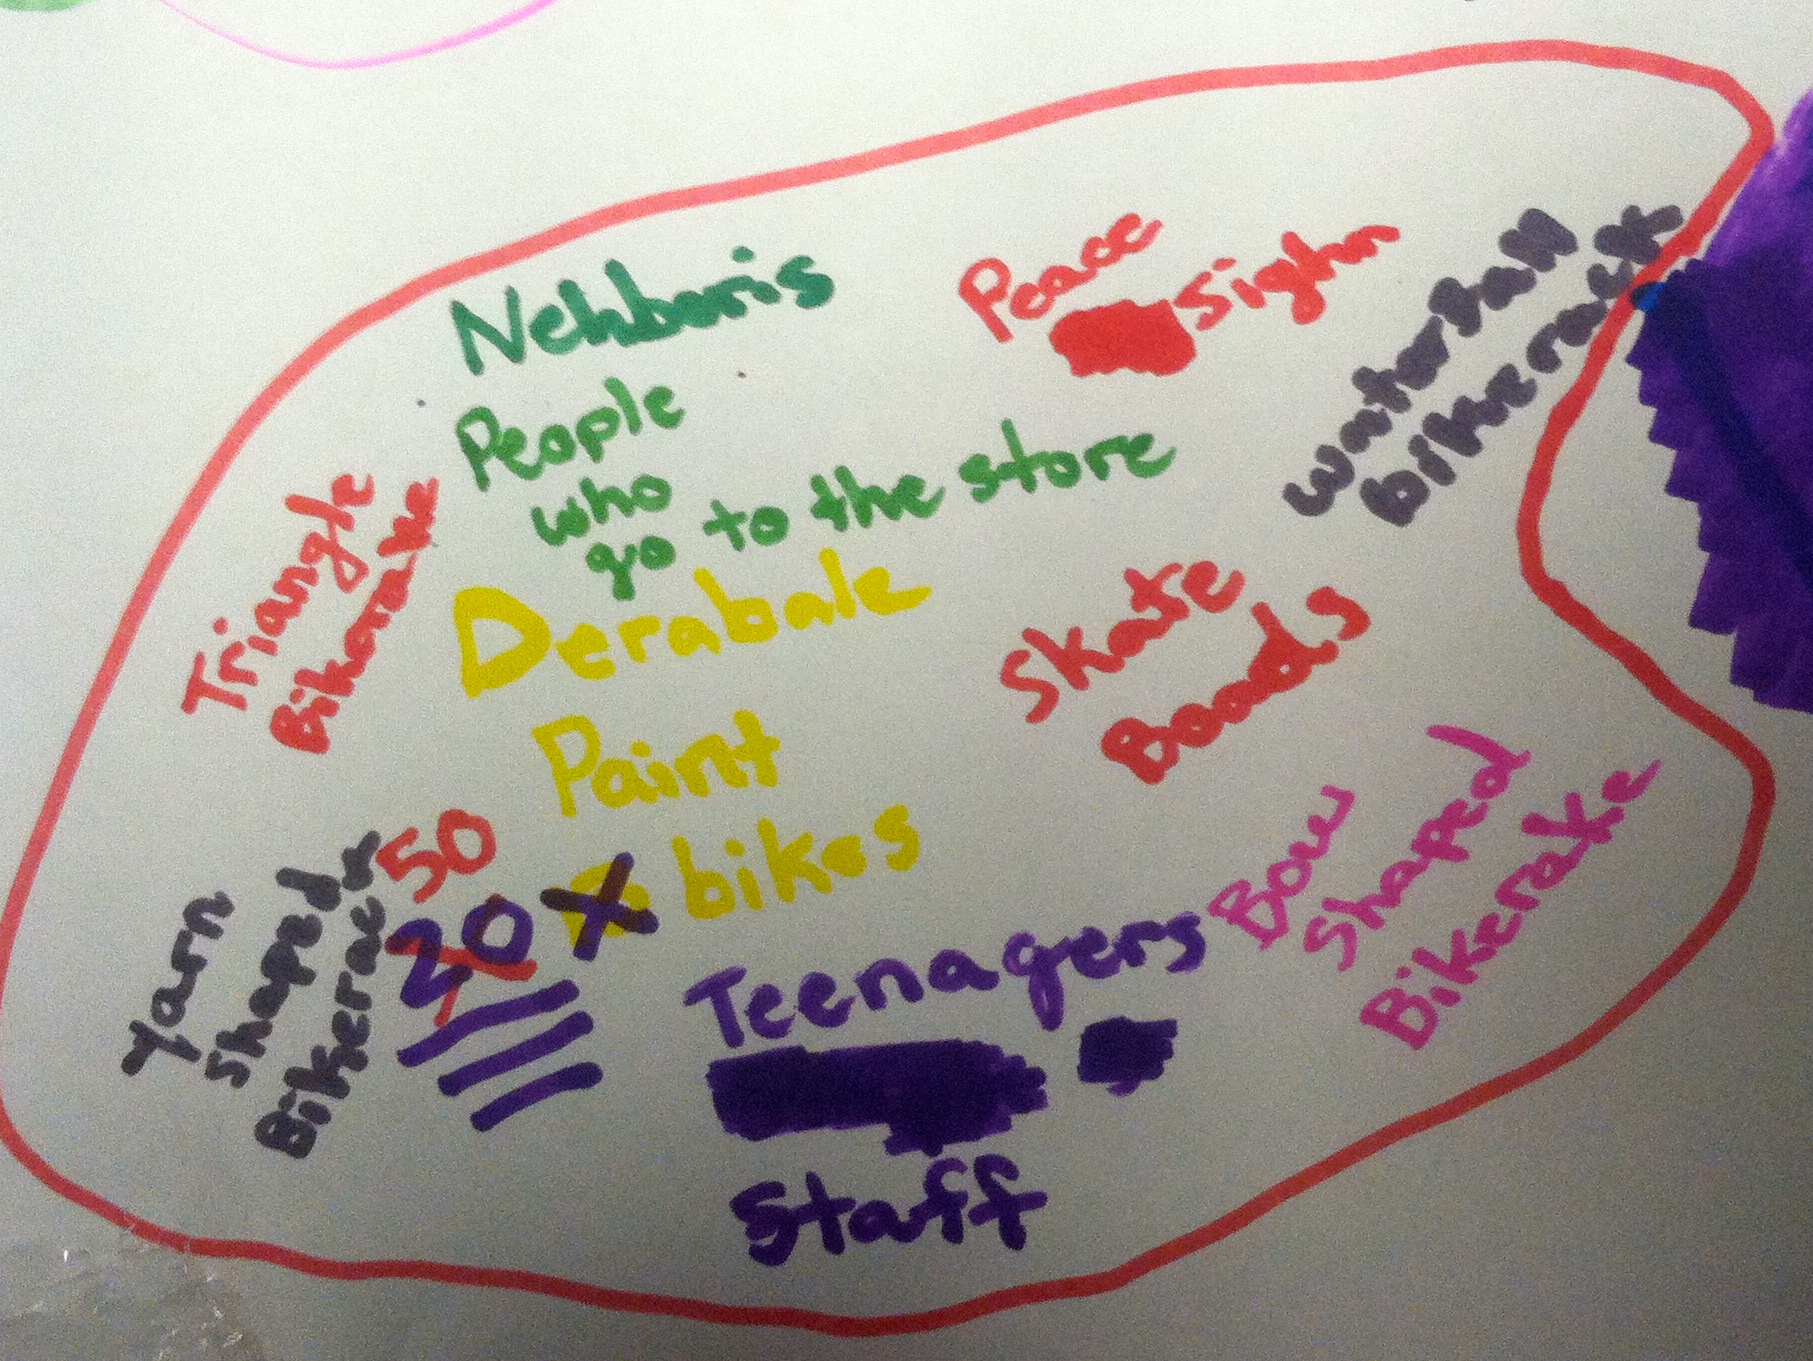 Nehboris
People
who
go to the store
Peace
Sighn
waterfall
bikerack
Triangle
Bikerake
Derabale
Paint
bikes
Skate
Boads
50
20 X
yarn
shaped
Bikerack
Teenagers
Staff
Bow
Shaped
Bikerake